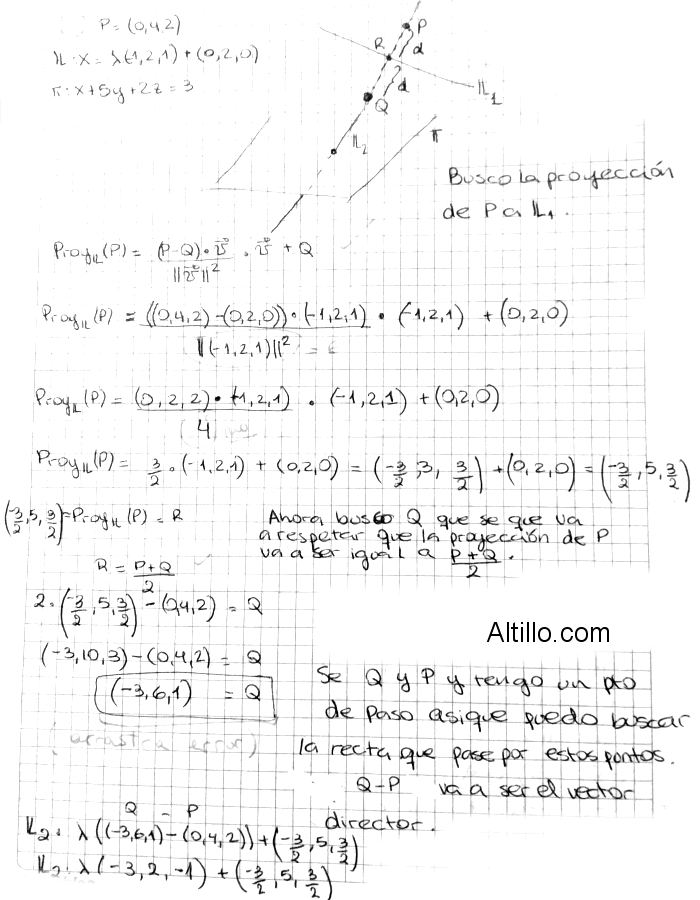 P = (0,4,2)
𝕃: X = λ(-1,2,1) + (0,2,0)
π: x+5y+2z = 3
P
R
d
d
Q
𝕃1
𝕃2
π
Busco la proyección
de P a 𝕃1.
Proy𝕃(P) = (P-Q)·v⃗ / ||v⃗||² · v⃗ + Q
Proy𝕃(P) = ((0,4,2)-(0,2,0))·(-1,2,1) / ||(-1,2,1)||² · (-1,2,1) + (0,2,0)
Proy𝕃(P) = (0,2,2)·(-1,2,1) / 4 · (-1,2,1) + (0,2,0)
Proy𝕃(P) = 3/2 · (-1,2,1) + (0,2,0) = (-3/2, 3, 3/2) + (0,2,0) = (-3/2, 5, 3/2)
(-3/2, 5, 3/2) = Proy𝕃(P) = R
Ahora busco Q que se que va
a respetar que la proyección de P
va a ser igual a P+Q / 2.
R = P+Q / 2
2·(-3/2, 5, 3/2) - (0,4,2) = Q
(-3,10,3) - (0,4,2) = Q
(-3,6,1) = Q
(arrastra error)
Altillo.com
Se Q y P y tengo un pto
de paso asique puedo buscar
la recta que pase por estos pontos.
Q-P va a ser el vector
director.
Q - P
𝕃2: λ((-3,6,1)-(0,4,2)) + (-3/2, 5, 3/2)
𝕃2: λ(-3,2,-1) + (-3/2, 5, 3/2)